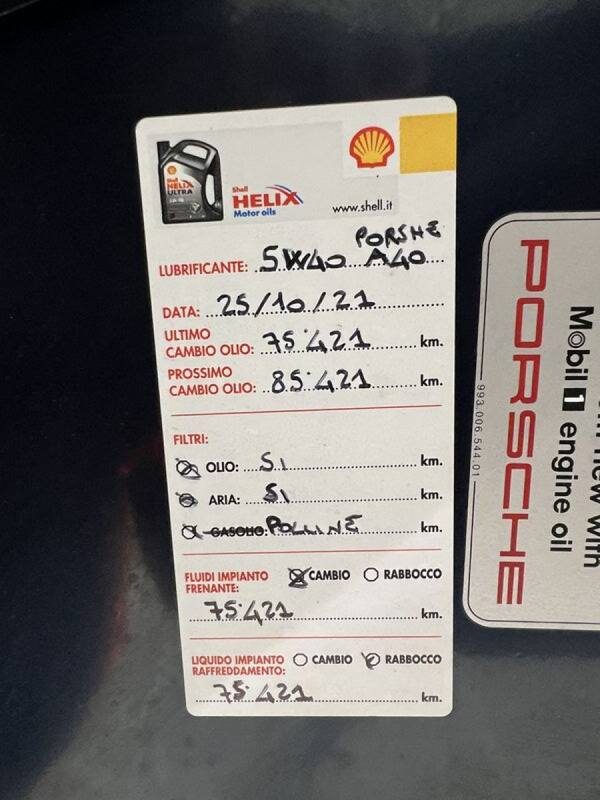 Shell
HELIX
ULTRA
Shell
HELIX
Motor oils
www.shell.it
PORSHE
LUBRIFICANTE: 5W40 A40
DATA: 25/10/21
ULTIMO
CAMBIO OLIO: 75.421 km.
PROSSIMO
CAMBIO OLIO: 85.421 km.
FILTRI:
OLIO: SI km.
ARIA: SI km.
GASOLIO: POLLINE km.
FLUIDI IMPIANTO
FRENANTE: CAMBIO RABBOCCO
75.421 km.
LIQUIDO IMPIANTO
RAFFREDDAMENTO: CAMBIO RABBOCCO
75.421 km.
new with
Mobil 1 engine oil
PORSCHE
993.006.544.01